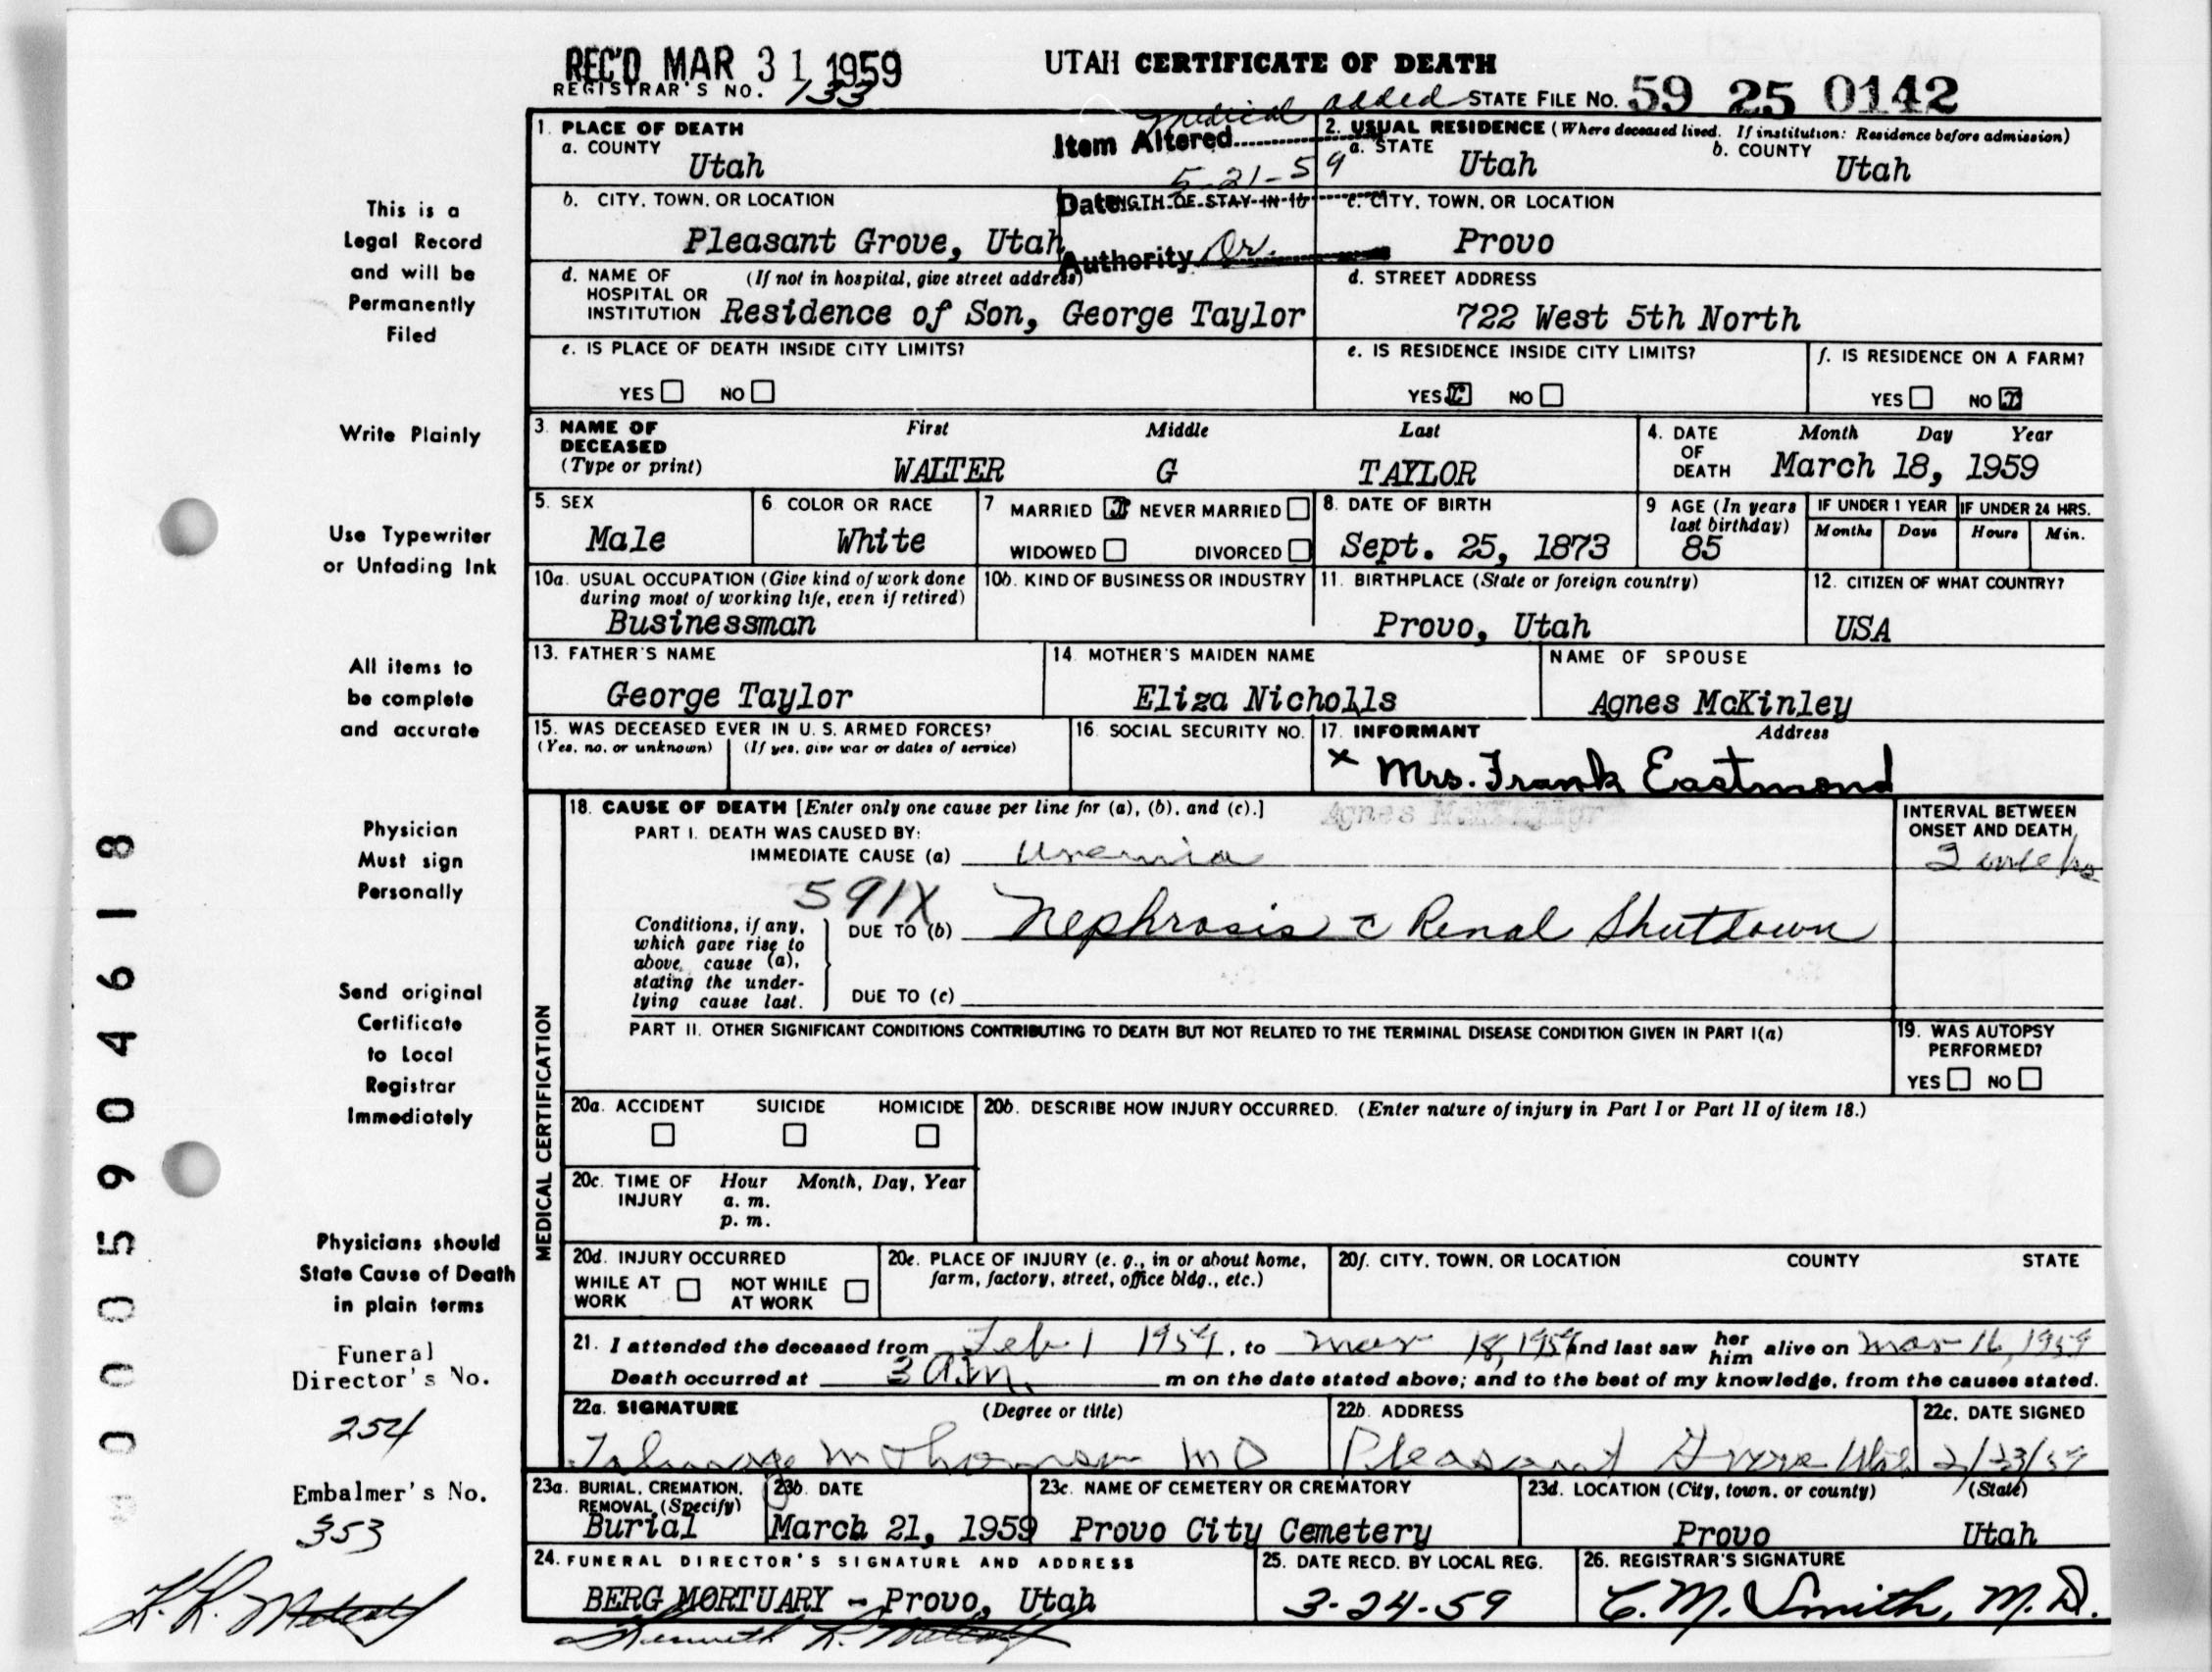 REC'D MAR 31 1959
UTAH CERTIFICATE OF DEATH
REGISTRAR'S NO. 133
added STATE FILE No. 59 25 0142
medical
Item Altered
5-21-59
Date
Authority Dr.
1. PLACE OF DEATH
a. COUNTY
Utah
2. USUAL RESIDENCE (Where deceased lived. If institution: Residence before admission)
a. STATE Utah
b. COUNTY Utah
b. CITY, TOWN, OR LOCATION
Pleasant Grove, Utah
LENGTH OF STAY IN 1b
c. CITY, TOWN, OR LOCATION
Provo
d. NAME OF HOSPITAL OR INSTITUTION (If not in hospital, give street address)
Residence of Son, George Taylor
d. STREET ADDRESS
722 West 5th North
e. IS PLACE OF DEATH INSIDE CITY LIMITS?
YES NO
e. IS RESIDENCE INSIDE CITY LIMITS?
YES X NO
f. IS RESIDENCE ON A FARM?
YES NO X
3. NAME OF DECEASED (Type or print)
First Middle Last
WALTER G TAYLOR
4. DATE OF DEATH
Month Day Year
March 18, 1959
5. SEX
Male
6. COLOR OR RACE
White
7 MARRIED X NEVER MARRIED
WIDOWED DIVORCED
8. DATE OF BIRTH
Sept. 25, 1873
9 AGE (In years last birthday)
85
IF UNDER 1 YEAR
Months Days
IF UNDER 24 HRS.
Hours Min.
10a. USUAL OCCUPATION (Give kind of work done during most of working life, even if retired)
Businessman
10b. KIND OF BUSINESS OR INDUSTRY
11. BIRTHPLACE (State or foreign country)
Provo, Utah
12. CITIZEN OF WHAT COUNTRY?
USA
13. FATHER'S NAME
George Taylor
14. MOTHER'S MAIDEN NAME
Eliza Nicholls
NAME OF SPOUSE
Agnes McKinley
15. WAS DECEASED EVER IN U. S. ARMED FORCES?
(Yes, no, or unknown) (If yes, give war or dates of service)
16. SOCIAL SECURITY NO.
17. INFORMANT Address
x Mrs. Frank Eastmond
18. CAUSE OF DEATH [Enter only one cause per line for (a), (b), and (c).]
Agnes
PART I. DEATH WAS CAUSED BY:
IMMEDIATE CAUSE (a) Uremia
INTERVAL BETWEEN ONSET AND DEATH
2 weeks
591X
Conditions, if any, which gave rise to above cause (a), stating the underlying cause last.
DUE TO (b) Nephrosis c Renal Shutdown
DUE TO (c)
PART II. OTHER SIGNIFICANT CONDITIONS CONTRIBUTING TO DEATH BUT NOT RELATED TO THE TERMINAL DISEASE CONDITION GIVEN IN PART I(a)
19. WAS AUTOPSY PERFORMED?
YES NO
MEDICAL CERTIFICATION
20a. ACCIDENT SUICIDE HOMICIDE
20b. DESCRIBE HOW INJURY OCCURRED. (Enter nature of injury in Part I or Part II of item 18.)
20c. TIME OF INJURY
Hour Month, Day, Year
a. m.
p. m.
20d. INJURY OCCURRED
WHILE AT WORK NOT WHILE AT WORK
20e. PLACE OF INJURY (e. g., in or about home, farm, factory, street, office bldg., etc.)
20f. CITY, TOWN, OR LOCATION COUNTY STATE
21. I attended the deceased from Feb 1 1959, to Mar 18, 1959 and last saw her him alive on Mar 16, 1959
Death occurred at 3 a.m. m on the date stated above; and to the best of my knowledge, from the causes stated.
22a. SIGNATURE (Degree or title)
Talmage M Thomson MD
22b. ADDRESS
Pleasant Grove Utah
22c. DATE SIGNED
/23/59
23a. BURIAL, CREMATION, REMOVAL (Specify)
Burial
23b. DATE
March 21, 1959
23c. NAME OF CEMETERY OR CREMATORY
Provo City Cemetery
23d. LOCATION (City, town, or county) (State)
Provo Utah
24. FUNERAL DIRECTOR'S SIGNATURE AND ADDRESS
BERG MORTUARY - Provo, Utah
Kenneth L. Metcalf
25. DATE RECD. BY LOCAL REG.
3-24-59
26. REGISTRAR'S SIGNATURE
C. M. Smith, M. D.
This is a
Legal Record
and will be
Permanently
Filed
Write Plainly
Use Typewriter
or Unfading Ink
All items to
be complete
and accurate
Physician
Must sign
Personally
Send original
Certificate
to Local
Registrar
Immediately
Physicians should
State Cause of Death
in plain terms
Funeral
Director's No.
254
Embalmer's No.
353
K. L. Metcalf
0005904618